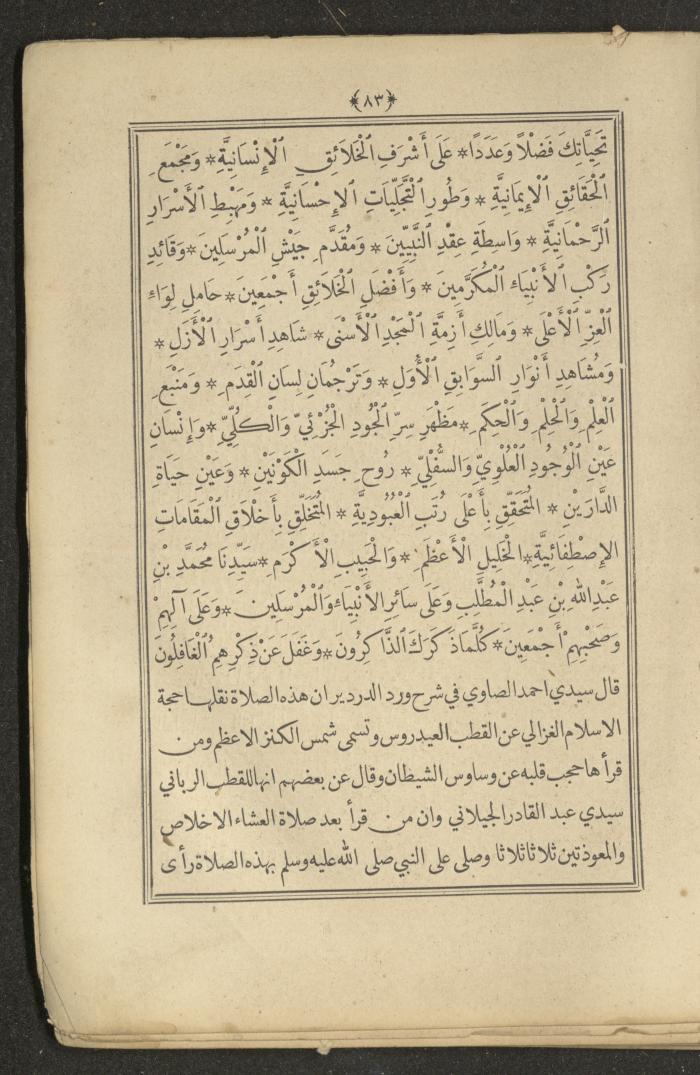 ﴿٨٣﴾
تَحِيَّاتِكَ فَضْلًا وَعَدَدًا * عَلَى أَشْرَفِ الْخَلَائِقِ الْإِنْسَانِيَّةِ * وَمَجْمَعِ
الْحَقَائِقِ الْإِيمَانِيَّةِ * وَطُورِ التَّجَلِّيَاتِ الْإِحْسَانِيَّةِ * وَمَهْبِطِ الْأَسْرَارِ
الرَّحْمَانِيَّةِ * وَاسِطَةِ عِقْدِ النَّبِيِّينَ * وَمُقَدَّمِ جَيْشِ الْمُرْسَلِينَ * وَقَائِدِ
رَكْبِ الْأَنْبِيَاءِ الْمُكَرَّمِينَ * وَأَفْضَلِ الْخَلَائِقِ أَجْمَعِينَ * حَامِلِ لِوَاءِ
الْعِزِّ الْأَعْلَى * وَمَالِكِ أَزِمَّةِ الْمَجْدِ الْأَسْنَى * شَاهِدِ أَسْرَارِ الْأَزَلِ *
وَمُشَاهِدِ أَنْوَارِ السَّوَابِقِ الْأُوَلِ * وَتَرْجُمَانِ لِسَانِ الْقِدَمِ * وَمَنْبَعِ
الْعِلْمِ وَالْحِلْمِ وَالْحِكَمِ * مَظْهَرِ سِرِّ الْجُودِ الْجُزْئِيِّ وَالْكُلِّيِّ * وَإِنْسَانِ
عَيْنِ الْوُجُودِ الْعُلْوِيِّ وَالسُّفْلِيِّ * رُوحِ جَسَدِ الْكَوْنَيْنِ * وَعَيْنِ حَيَاةِ
الدَّارَيْنِ * الْمُتَحَقِّقِ بِأَعْلَى رُتَبِ الْعُبُودِيَّةِ * الْمُتَخَلِّقِ بِأَخْلَاقِ الْمَقَامَاتِ
الْإِصْطِفَائِيَّةِ * الْخَلِيلِ الْأَعْظَمِ * وَالْحَبِيبِ الْأَكْرَمِ * سَيِّدِنَا مُحَمَّدِ بْنِ
عَبْدِ اللهِ بْنِ عَبْدِ الْمُطَّلِبِ وَعَلَى سَائِرِ الْأَنْبِيَاءِ وَالْمُرْسَلِينَ * وَعَلَى آلِهِمْ
وَصَحْبِهِمْ أَجْمَعِينَ * كُلَّمَا ذَكَرَكَ الذَّاكِرُونَ * وَغَفَلَ عَنْ ذِكْرِهِمُ الْغَافِلُونَ
قال سيدي احمد الصاوي في شرح ورد الدردير ان هذه الصلاة نقلها حجة
الاسلام الغزالي عن القطب العيدروس وتسمى شمس الكنز الاعظم ومن
قرأها حجب قلبه عن وساوس الشيطان وقال عن بعضهم انها للقطب الرباني
سيدي عبد القادر الجيلاني وان من قرأ بعد صلاة العشاء الاخلاص
والمعوذتين ثلاثا ثلاثا وصلى على النبي صلى الله عليه وسلم بهذه الصلاة رأى